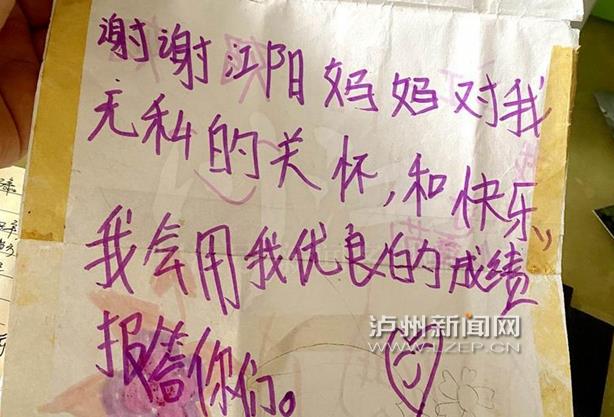 谢谢江阳妈妈对我
无私的关怀,和快乐
我会用我优良的成绩
报答你们。
泸州新闻网
WWW.LZEP.CN